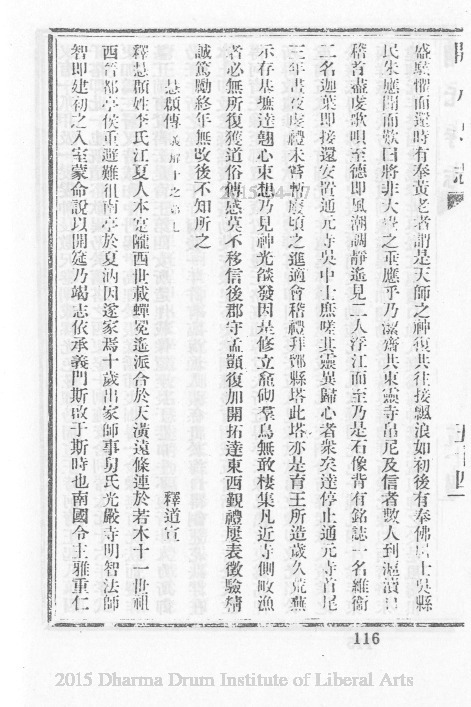 盛駭懼而還時有奉黃老者謂是天師之神復共往接飄浪如初後有奉佛居士吳縣
民朱應聞而歎曰將非大覺之垂應乎乃潔齋共東靈寺帛尼及信者數人到滬瀆口
稽首盡虔歌唄至德即風潮調靜遙見二人浮江而至乃是石像背有銘誌一名維衛
二名迦葉即接還安置通元寺吳中士庶嗟其靈異歸心者眾矣達停止通元寺首尾
三年晝夜虔禮未嘗暫廢頃之進適會稽禮拜鄮縣塔此塔亦是育王所造歲久荒蕪
示存基墌達翹心束想乃見神光燄發因是修立龕砌羣鳥無敢棲集凡近寺側畋漁
者必無所復獲道俗傳感莫不移信後郡守孟顗復加開拓達東西覲禮屢表徵驗精
誠篤勵終年無改後不知所之
慧頵傳義解十之第七 釋道宣
釋慧頵姓李氏江夏人本寔隴西世載蟬冕遙派合於天潢遠條連於若木十一世祖
西晉都亭侯重避難徂南亭於夏汭因遂家焉十歲出家師事舅氏光嚴寺明智法師
智即建初之入室蒙命說以開筵乃竭志依承義門斯啟于斯時也南國令主雅重仁
116
2015 Dharma Drum Institute of Liberal Arts